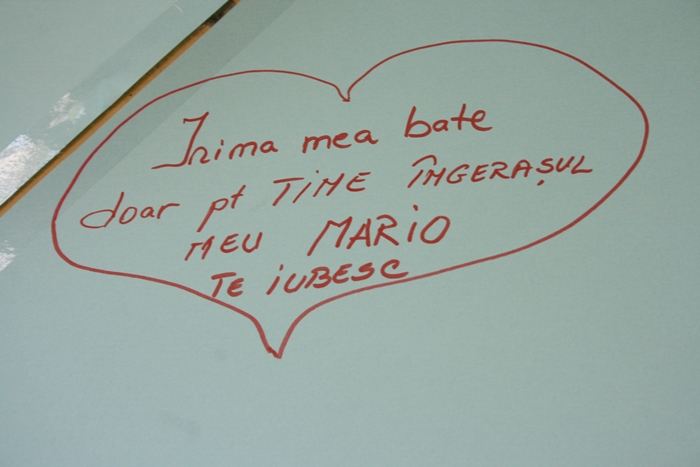 Inima mea bate
doar pt TINE ÎNGERAȘUL
MEU MARIO
TE IUBESC